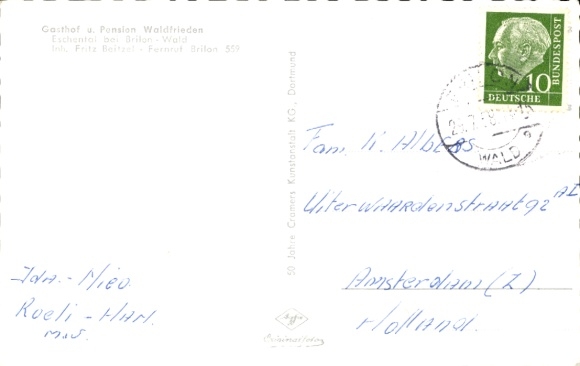 Gasthof u. Pension Waldfrieden
Eschental bei Brilon-Wald
Inh. Fritz Beitzel - Fernruf Brilon 559
DEUTSCHE
BUNDESPOST
10
WALD
50 Jahre Cramers Kunstanstalt KG., Dortmund
Fam. Albers
Uiterwaardenstraat 92
Amsterdam (Z).
Holland.
Roeli - Harl.